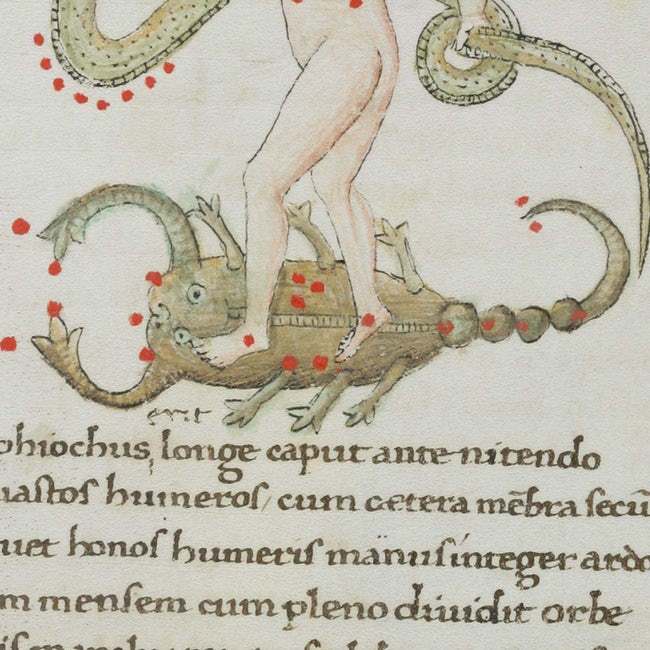 erit
phiochus, longe caput ante nitendo
uastos humeros / cum cetera mēbra secū
uet honos humeris manus integer ardo
m mensem cum pleno diuidit orbe